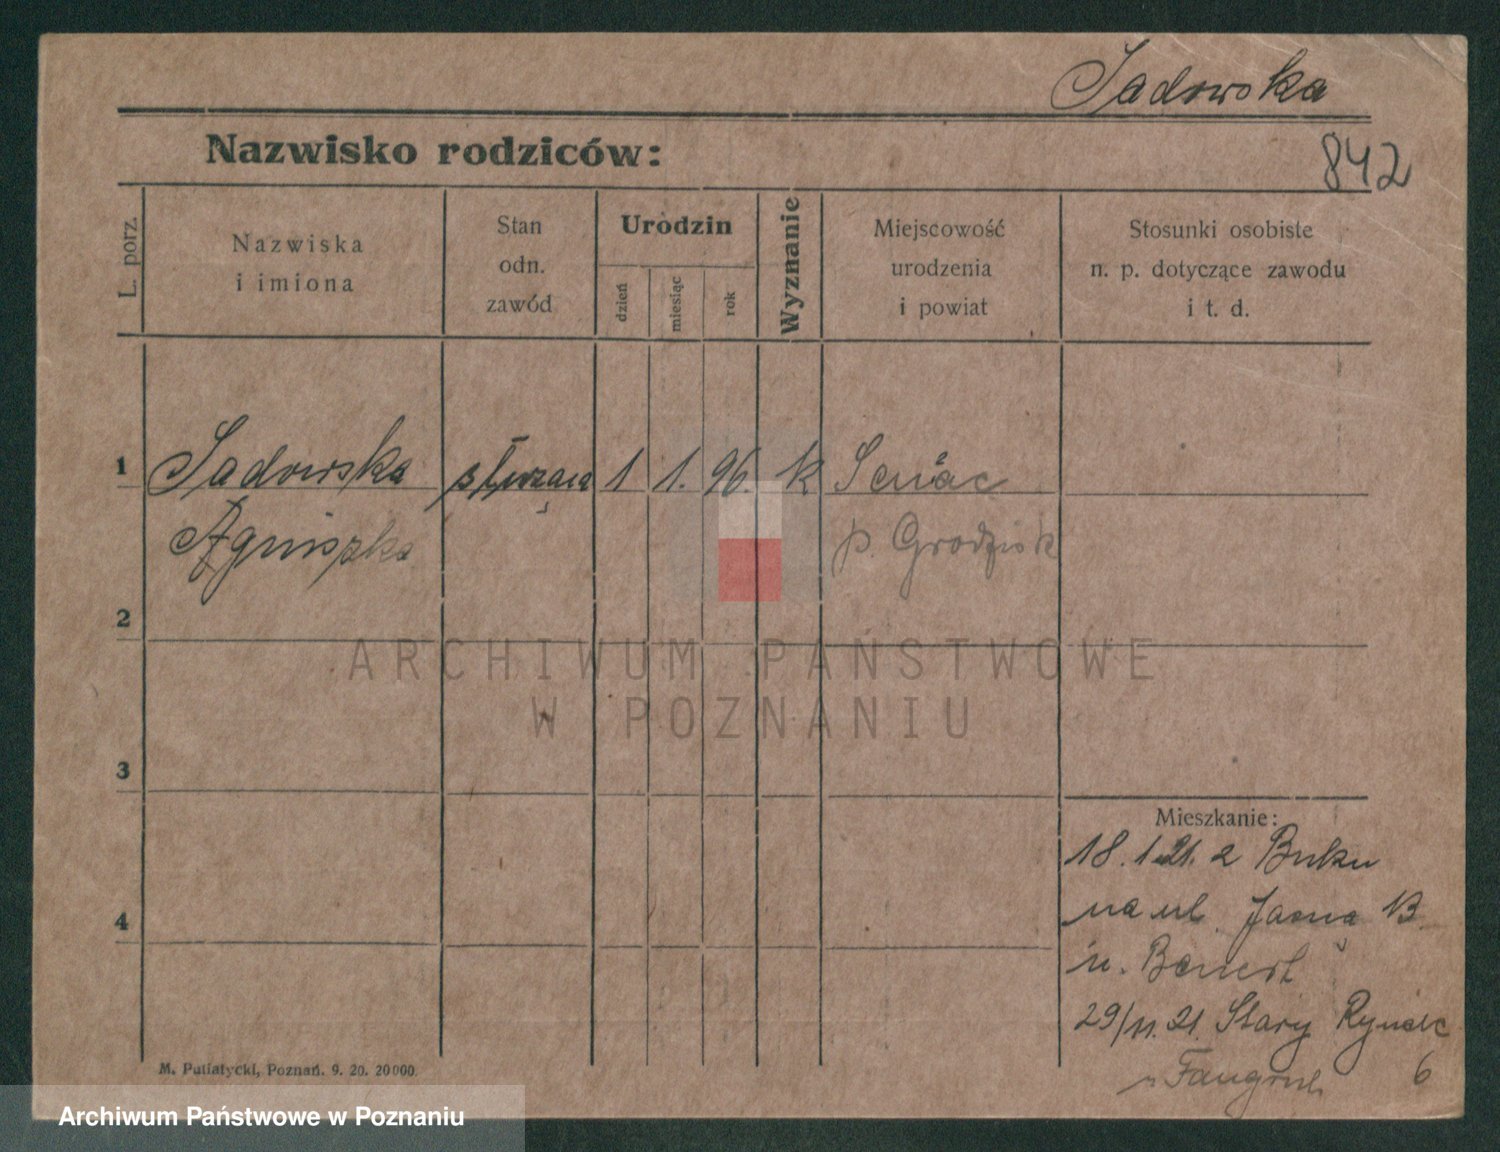 Sadowska
Nazwisko rodziców:
842
L. porz.
Nazwiska
i imiona
Stan
odn.
zawód
Urodzin
dzień
miesiąc
rok
Wyznanie
Miejscowość
urodzenia
i powiat
Stosunki osobiste
n. p. dotyczące zawodu
i t. d.
1 Sadowska służąca 1 1. 96. k
Agniszka p. Grodzisk
2
ARCHIWUM PAŃSTWOWE
W POZNANIU
3
Mieszkanie:
18. 1. 21. z Buku
4
na ul. Jasna 13
u.
29/11. 21. Stary Rynek
6
M. Putiatycki, Poznań. 9. 20. 20000.
Archiwum Państwowe w Poznaniu